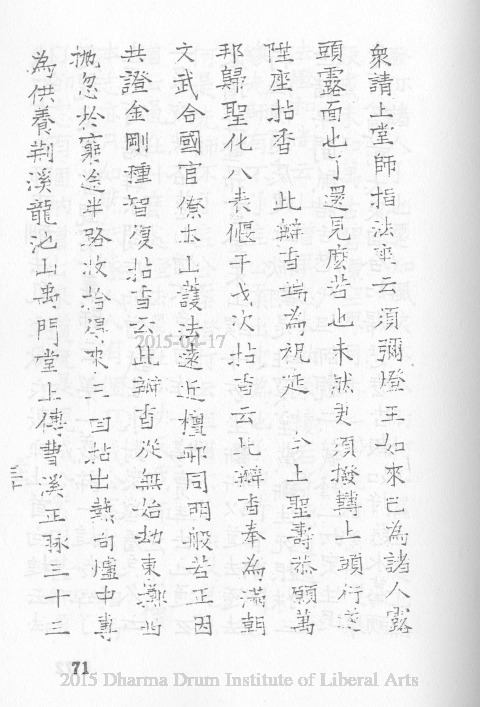 眾請上堂師指法座云須彌燈王如來已為諸人露
頭露面也了還見麼若也未然更須撥轉上頭行遂
陞座拈香 此瓣香端為祝延 今上聖壽恭願萬
邦歸聖化八表偃干戈次拈香云此瓣香奉為滿朝
文武合國官僚本山護法遠近檀那同明般若正因
共證金剛種智復拈香云此瓣香從無始劫東灑西
拋忽於窮途半路收拾得來三回拈出爇向爐中專
為供養荆溪龍池山禹門堂上傳曹溪正脉三十三
三十
71
2015-04-17
2015 Dharma Drum Institute of Liberal Arts